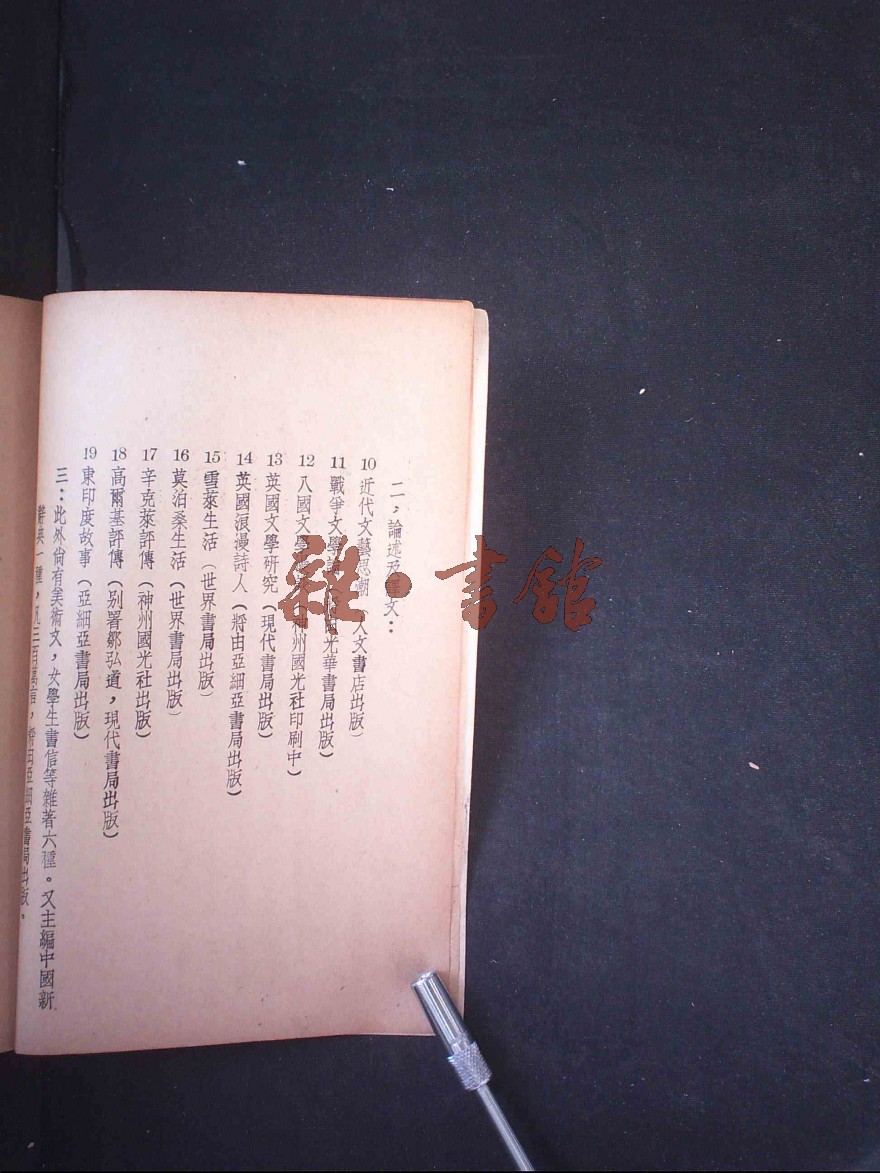 二，論述及譯文：
10 近代文藝思潮（人文書店出版）
11 戰爭文學 光華書局出版）
12 八國文學 神州國光社印刷中）
13 英國文學研究（現代書局出版）
14 英國浪漫詩人（將由亞細亞書局出版）
15 雪萊生活（世界書局出版）
16 莫泊桑生活（世界書局出版）
17 辛克萊評傳（神州國光社出版）
18 高爾基評傳（別署鄒弘道，現代書局出版）
19 東印度故事（亞細亞書局出版）
三：此外尙有美術文，女學生書信等雜著六種。又主編中國新
辭典一種，凡三百萬言，將由亞細亞書局出版。
雜·書館